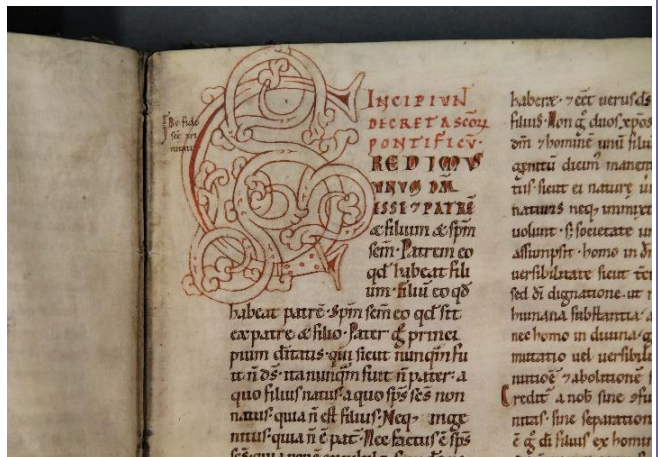 De fide
sc̄e tri
nitatis
INCIPIUN
DECRETA SCOꝜ
PONTIFICŪ·
REDIMUS
UNUM DM̄
ESSE ⁊ PATRĒ
& filium & sp̄m
sc̄m· Patrem eo
qd̓ habeat fili
um· filiū eo qđ
habeat patrē· Sp̄m sc̄m eo qđ sit
ex patre & filio· Pater g̊ princi
pium d̄itatis· qui sicut nunq̄m fu
it n̄ d̄s· ita nunq̄m fuit n̄ pater· a
quo filius natus· a quo sp̄s sc̄s non
natus· quia n̄ est filius· Neq; inge
nitus· quia n̄ ē pat̄· Nec factus ē sp̄s
habere· ⁊ eēt uerus ds
filius· Non g̊ duos xp̄os
dm̄ ⁊ hominē unū filiu
genitū dicim̄ manen
tis· sicut ei naturę u
naturis neq; inmixt
uolunt· s; societate un
assumpsit· homo in d
uersibilitate sicut
sed di dignatione· ut n
humana substantia· a
nec homo in diuina· q
mutatio uel uersibile
nutioē ⁊ abolitionē
Credit̄ a nob̄ sine
nitas· sine separation
ē g̊ di filius ex homin